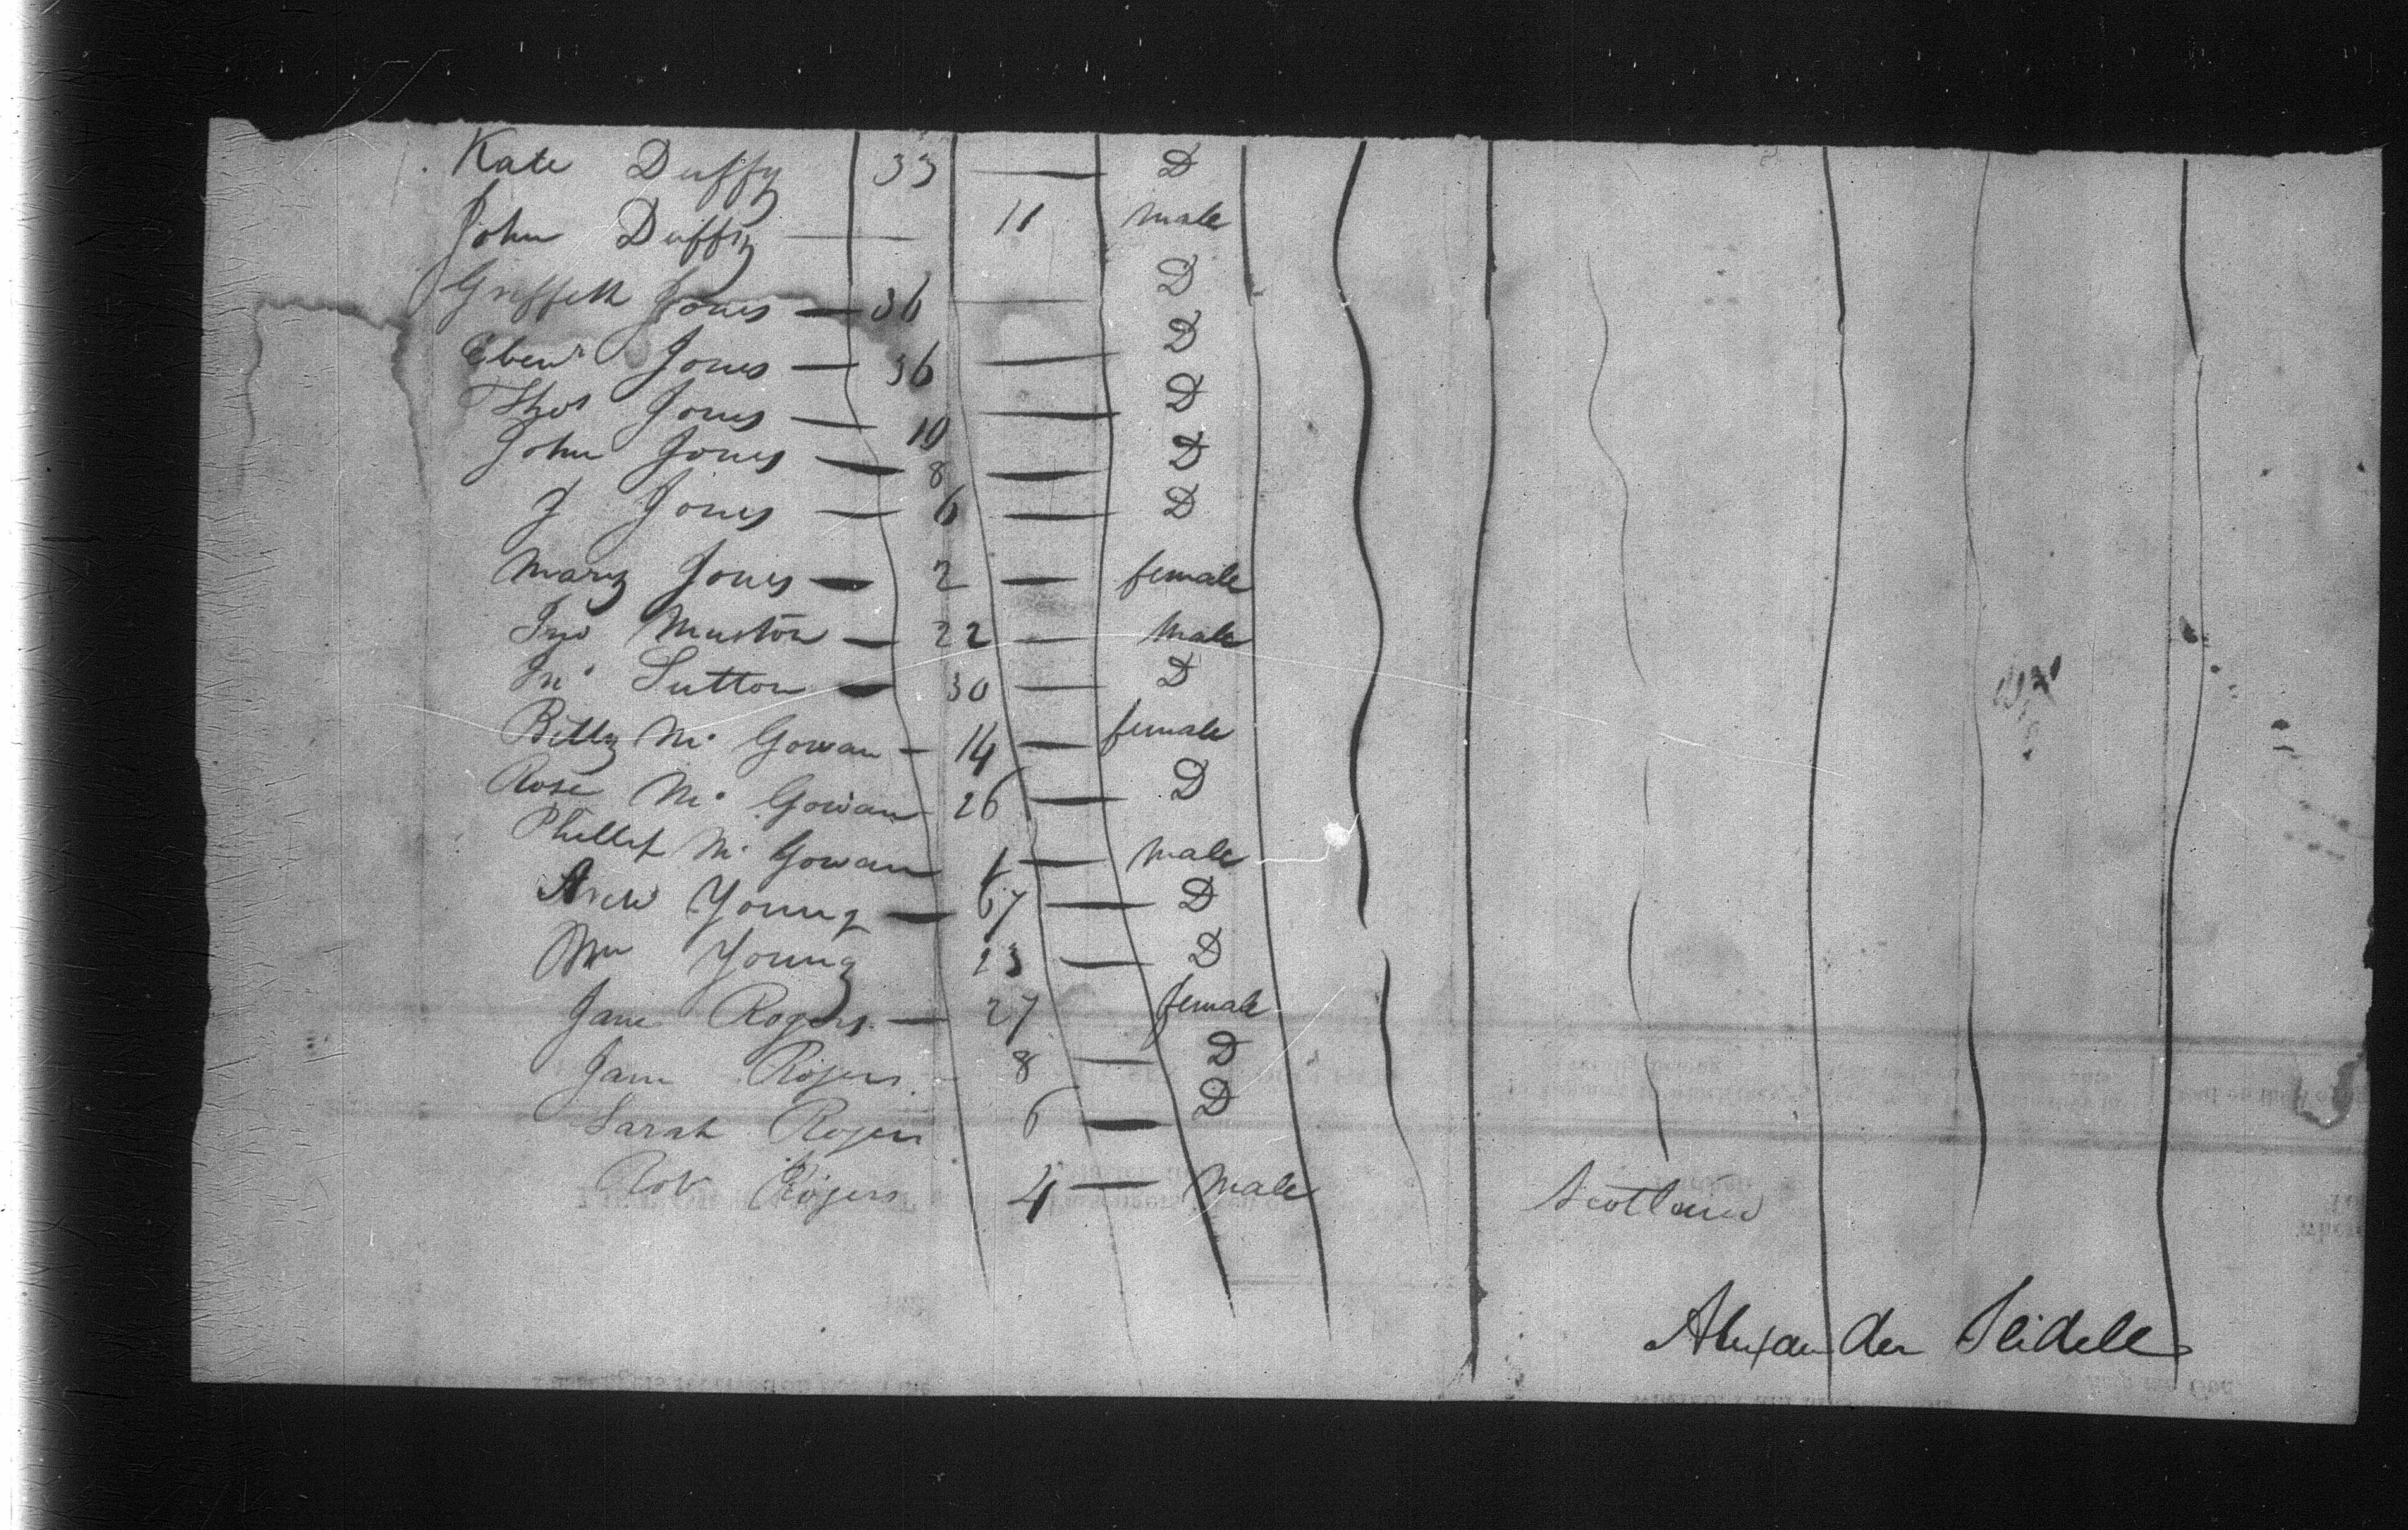 Kate Duffy 33 — D
John Duffy — 11 male
Griffith Jones — 36 — D
Eben^r Jones — 36 — D
Tho^s Jones — 10 — D
John Jones — 8 — D
J Jones — 6 — D
Mary Jones — 2 — female
Jno Muston — 22 — male
Jn^o Sutton — 30 — D
Betty Mc Gowan — 14 — female
Rose Mc Gowan 26 — D
Phillip Mc Gowan 1 — male
Andw Young — 67 — D
Wm Young 23 — D
Jane Rogers — 27 female
Jane Rogers 8 — D
Sarah Rogers 6 — D
Rob^t Rogers 4 — Male Scotland
Alexander Slidell